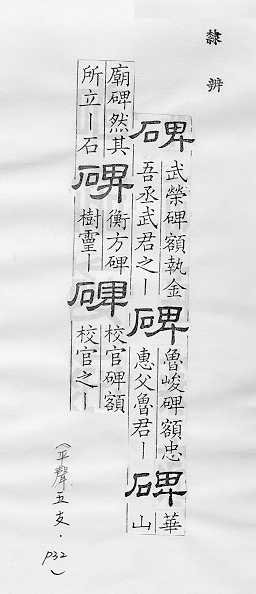 隸辨
碑
武榮碑額執金
吾丞武君之丨
碑
魯峻碑額忠
惠父魯君丨
碑
華
山
廟碑然其
所立丨石
碑
衡方碑
樹靈丨
碑
校官碑額
校官之丨
(平聲五支·P32)